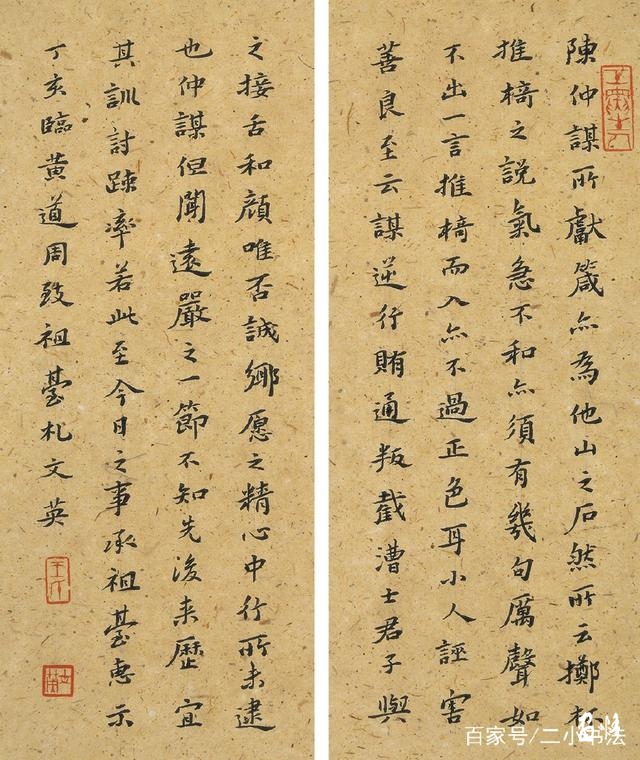 陳仲謀所獻箴亦為他山之石然所云擲杯
推椅之說氣急不和亦須有幾句厲聲如
不出一言推椅而入亦不過正色耳小人誣害
善良至云謀逆行賄通叛截漕士君子與
之接舌和顏唯否誠鄉愿之精心中行所未逮
也仲謀但聞遠嚴之一節不知先後来歷宜
其訓討踈率若此至今日之事承祖臺惠示
丁亥臨黃道周致祖臺札文英
百家号/二小书法